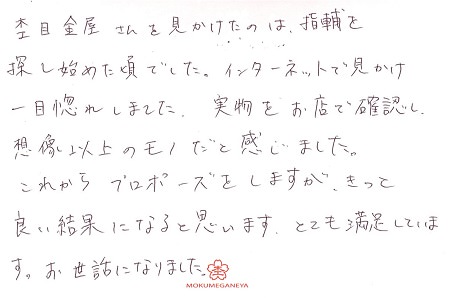 杢目金屋さんを見かけたのは、指輪を
探し始めた頃でした。インターネットで見かけ
一目惚れしました。実物をお店で確認し、
想像以上のモノだと感じました。
これからプロポーズをしますが、きっと
良い結果になると思います。とても満足していま
す。お世話になりました。
MOKUMEGANEYA